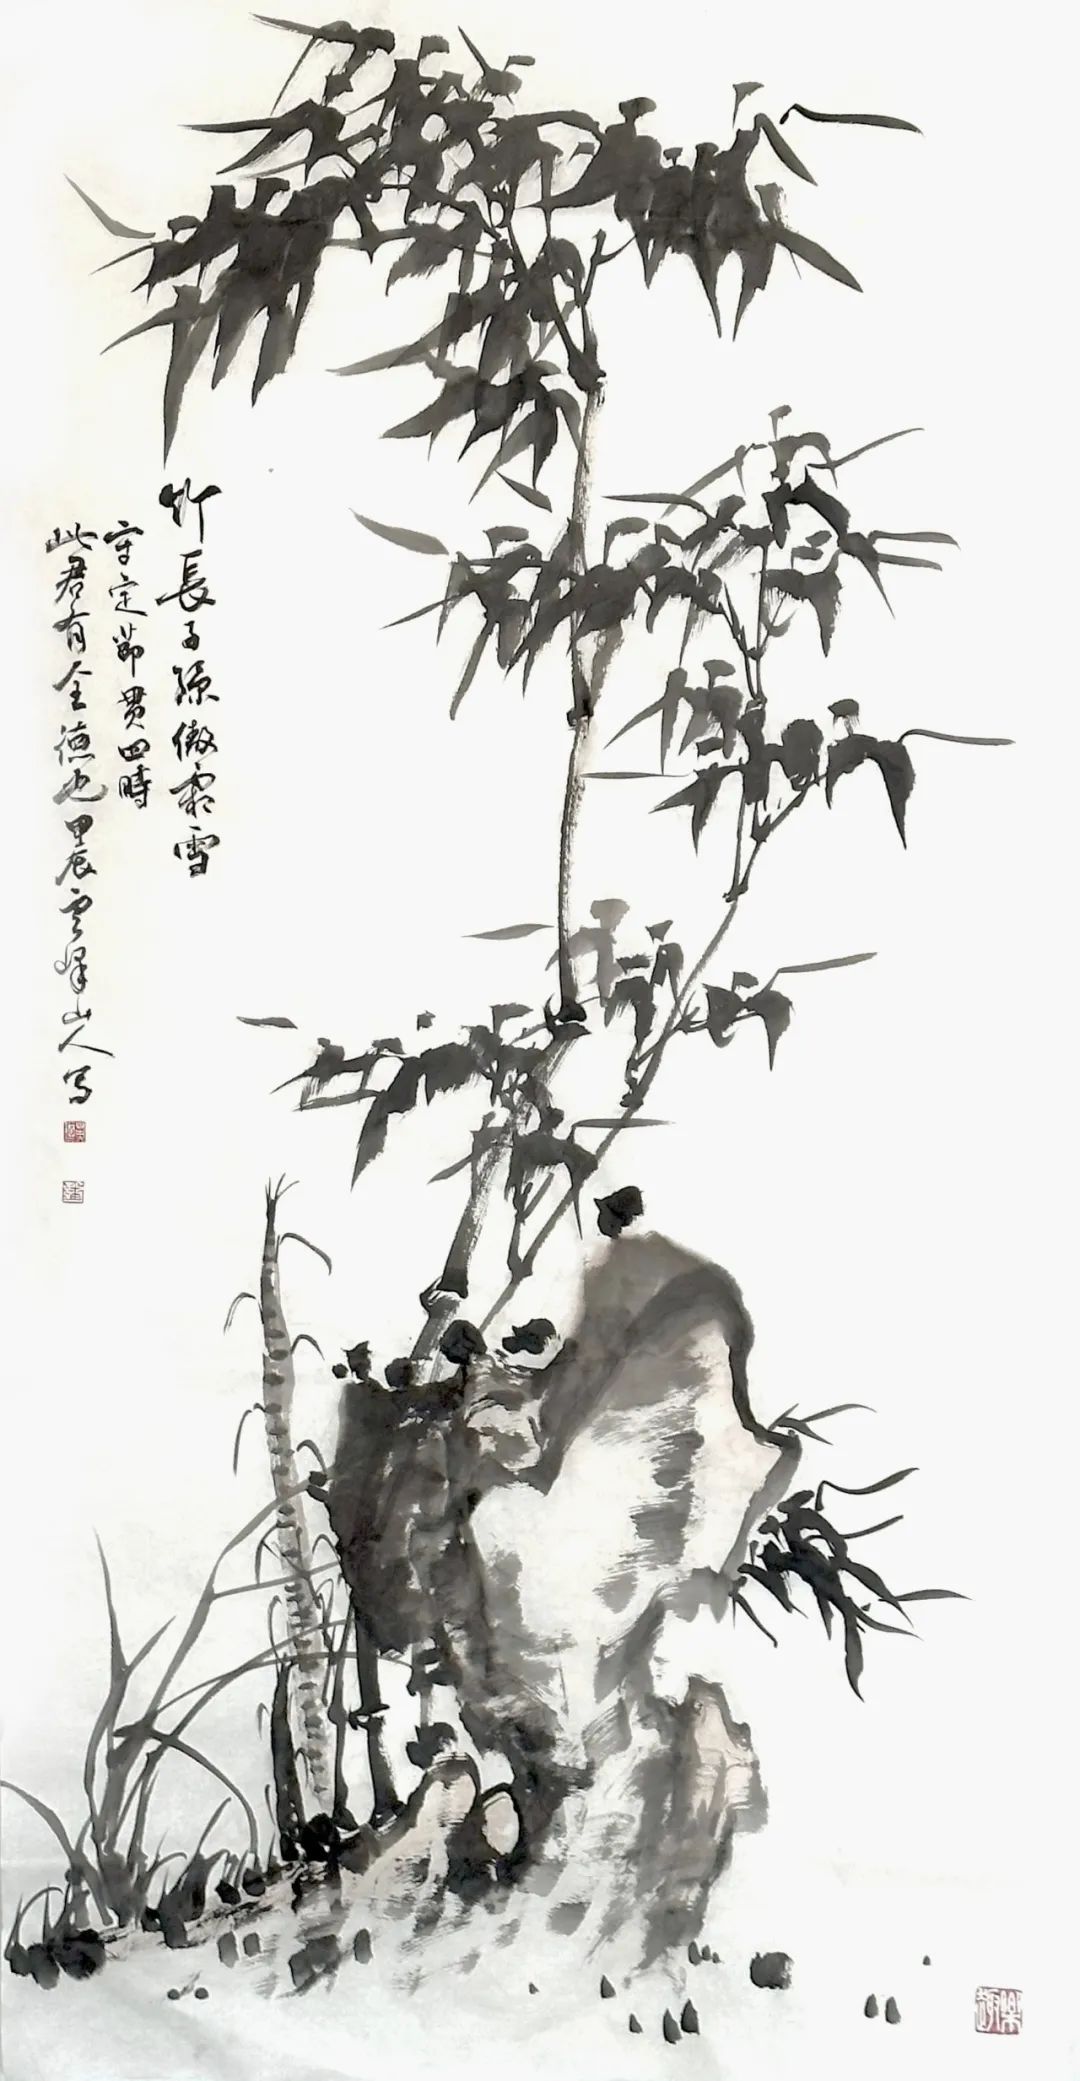 竹長子孫傲霜雪
守定節貫四時
此君有全德也甲辰雲峰山人寫
樂趣